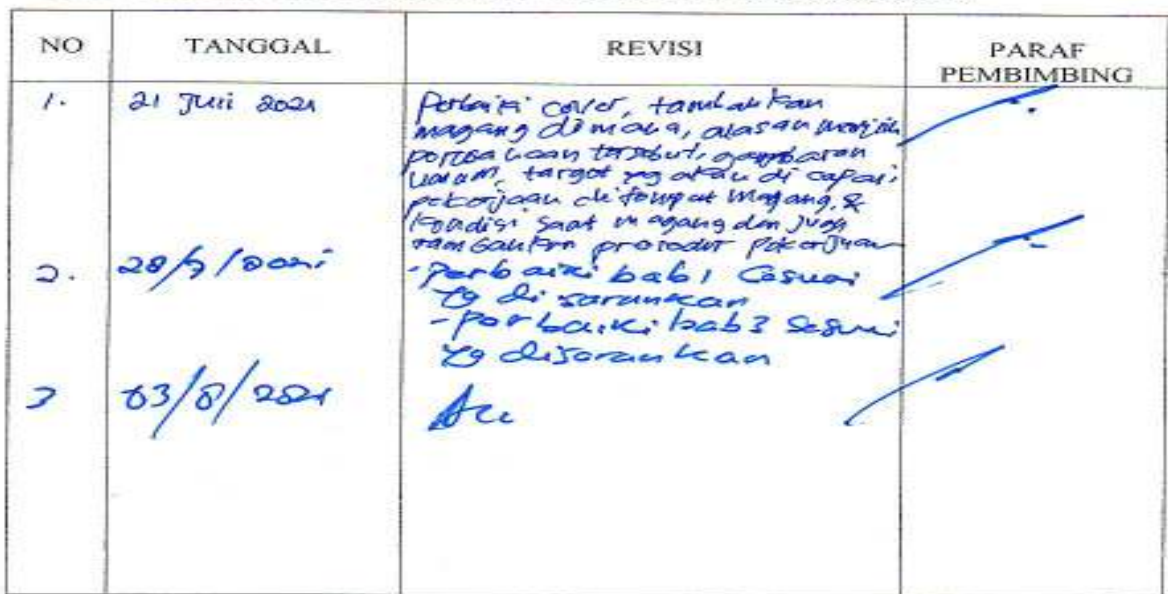 NO TANGGAL REVISI PARAF
PEMBIMBING
1. 21 Juli 2021 Perbaiki cover, tambahkan
magang dimana, alasan memilih
perusahaan tersebut, gambaran
umum, target yg akan di capai,
pekerjaan di tempat magang, &
kondisi saat magang dan juga
tambahkan prosedur pekerjaan
2. 28/7/2021 - Perbaiki bab 1 sesuai
yg di sarankan
- perbaiki bab 3 sesuai
yg disarankan
3 03/8/2021 Acc